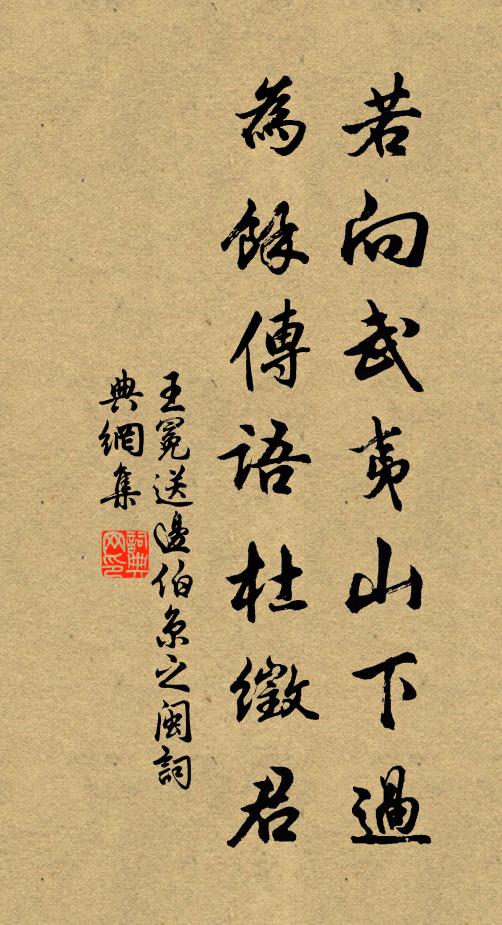 若向武夷山下過
為餘傳語杜徵君
王冕送邊伯京之閩詞
典網集
詞典網印